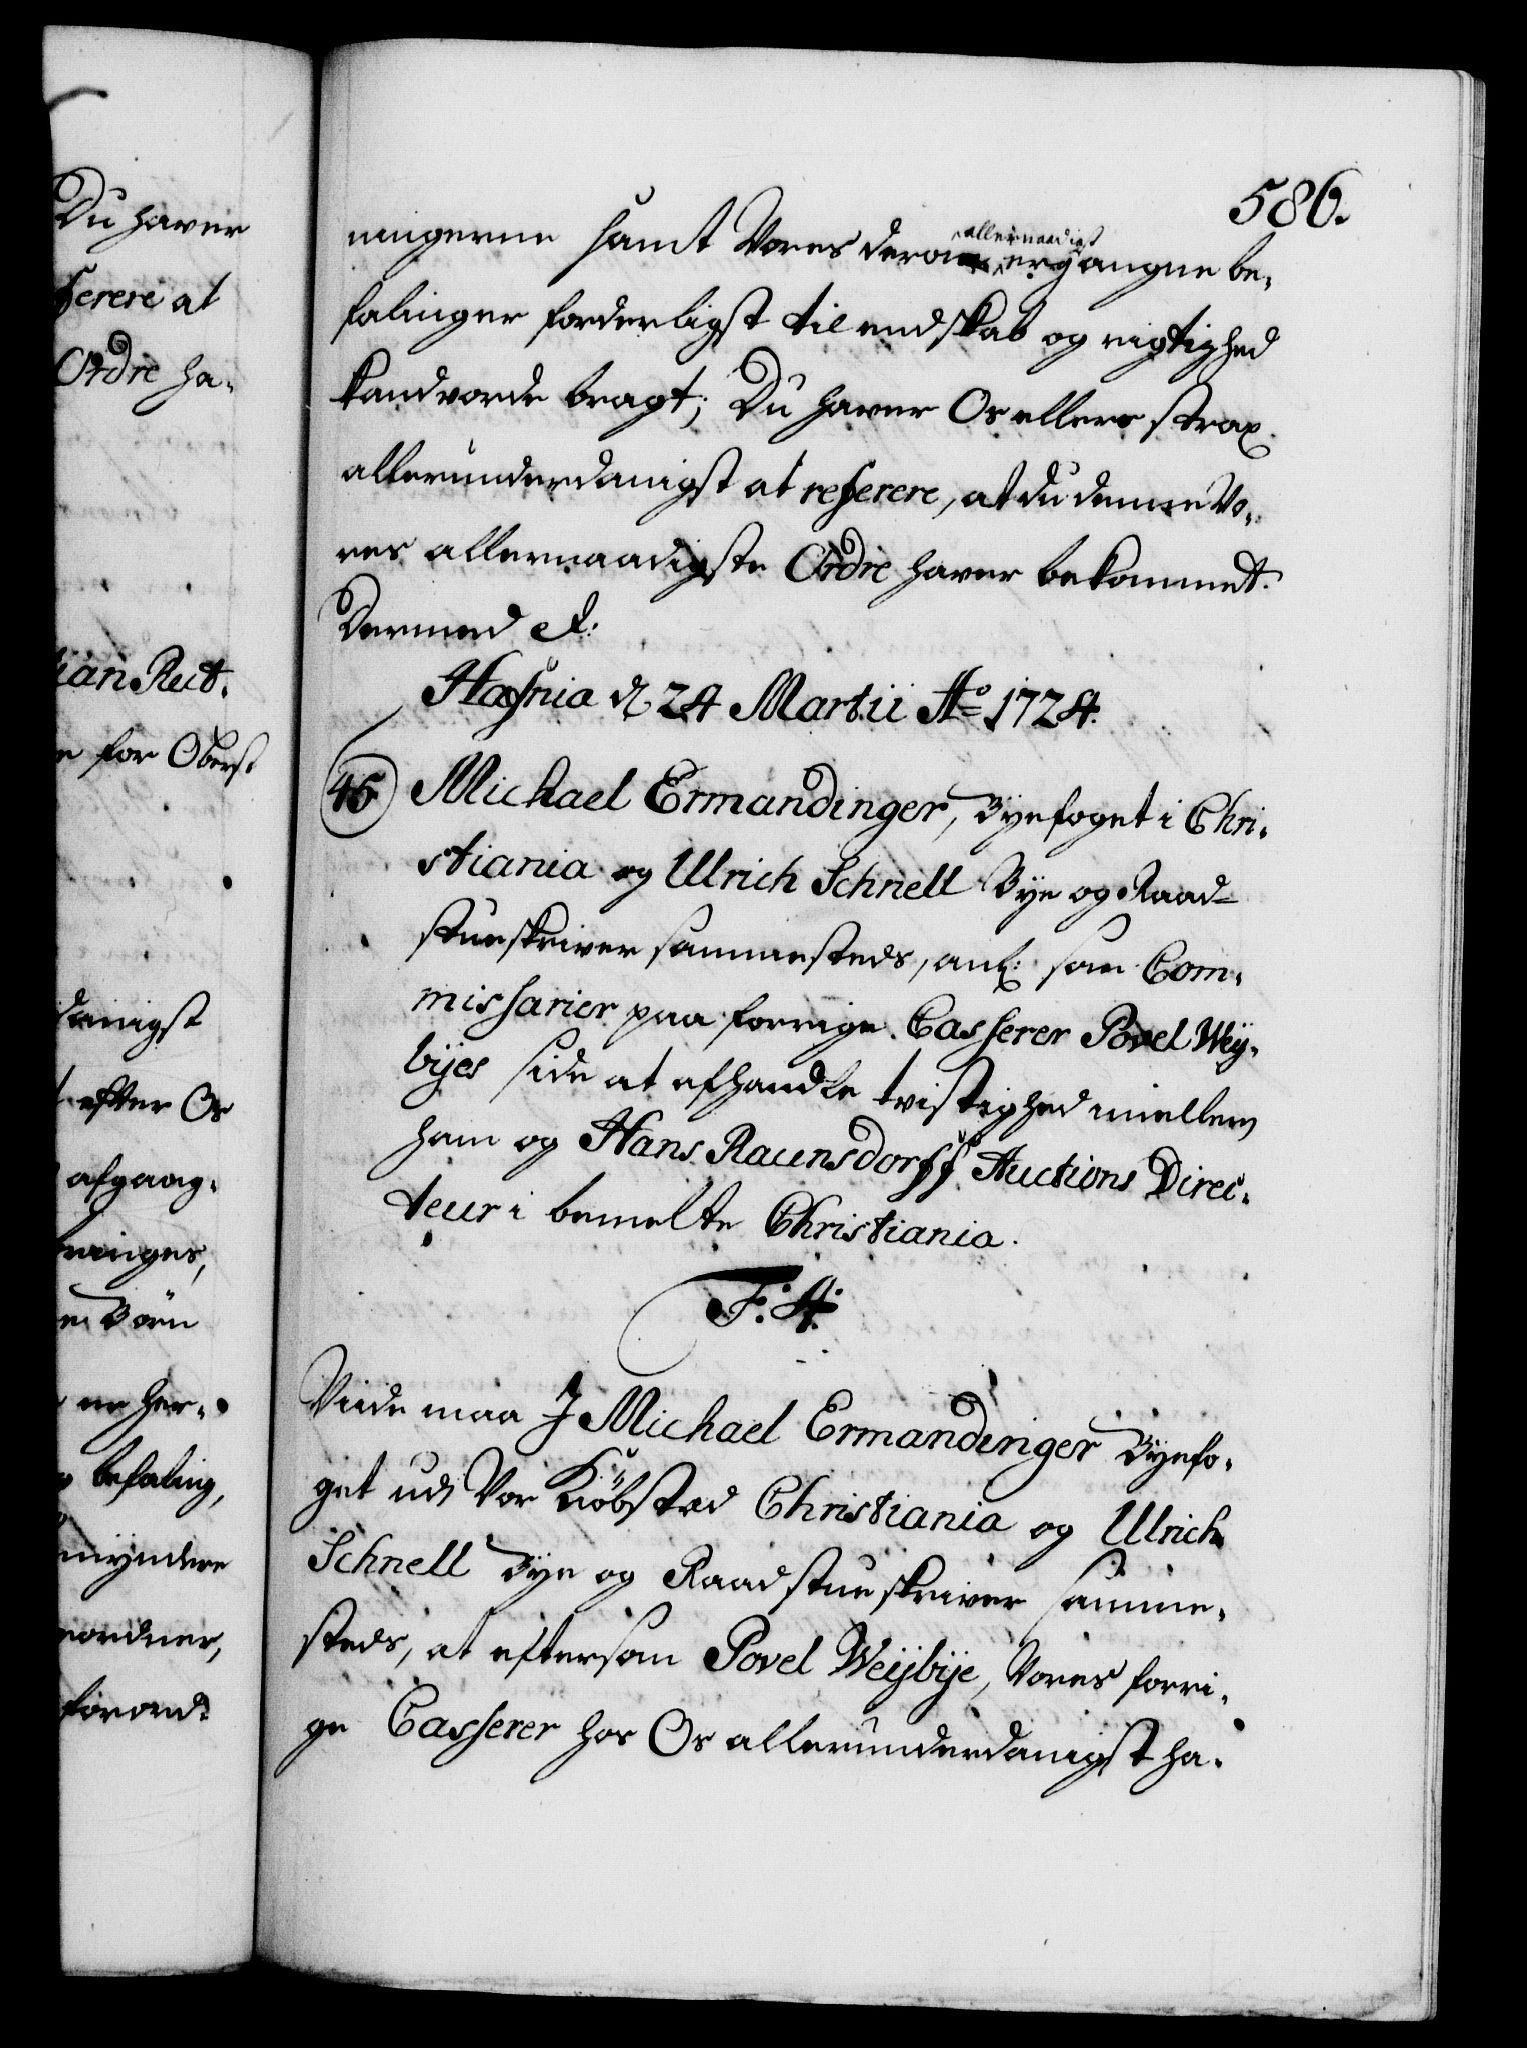 Du haver
ferere at
Ordre ha-
tian Reut.
e for Oberst
danigst
efter Os
afgaag-
ringes,
e Börn
er her-
befaling,
myndere
eordner,
forord:
586.
ningerne samt Vores derom allernaadigst ergangne be-
falinger forderligst til endskab og rigtighed
kand vorde bragt; Du haver Os ellers strax
allerunderdanigst at referere, at du denne Vo-
res allernaadigste Ordre haver bekommet.
Dermed &:
Hafnia d. 24 Martii Ao 1724.
46 Michael Ermandinger, Byefoget i Chri-
stiania og Ulrich Schnell Bye og Raad-
stueskriver sammesteds, anl: som Com-
missarier paa forrige Casserer Povel Wey-
byes side at afhandle tvistighed mellem
ham og Hans Raunsdorff Auctions Direc-
teur i bemelte Christiania.
F: 4:
Viide maa J Michael Ermandinger Byefo-
get udi Vor Kiöbsted Christiania og Ulrich
Schnell Bye og Raadstueskriver samme-
steds, at eftersom Povel Weybye, Vores forri-
ge Casserer hos Os allerunderdanigst ha-